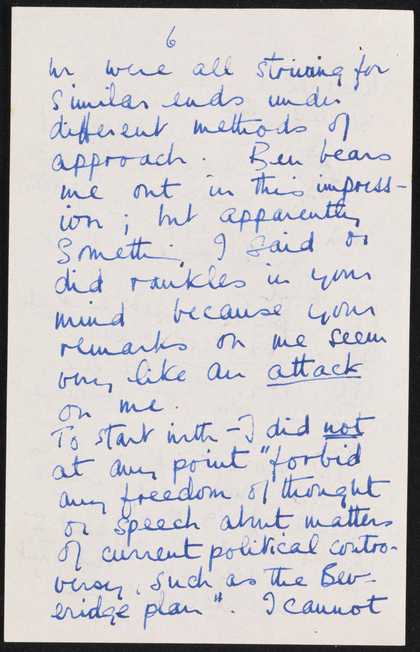 6
we were all striving for
similar ends under
different methods of
approach. Ben bears
me out in this impress-
ion; but apparently
Something I said or
did rankles in your
mind because your
remarks on me seem
very like an attack
on me.
To start with - I did not
at any point "forbid
any freedom of thought
or speech about matters
of current political contro-
versy, such as the Bev-
eridge plan". I cannot